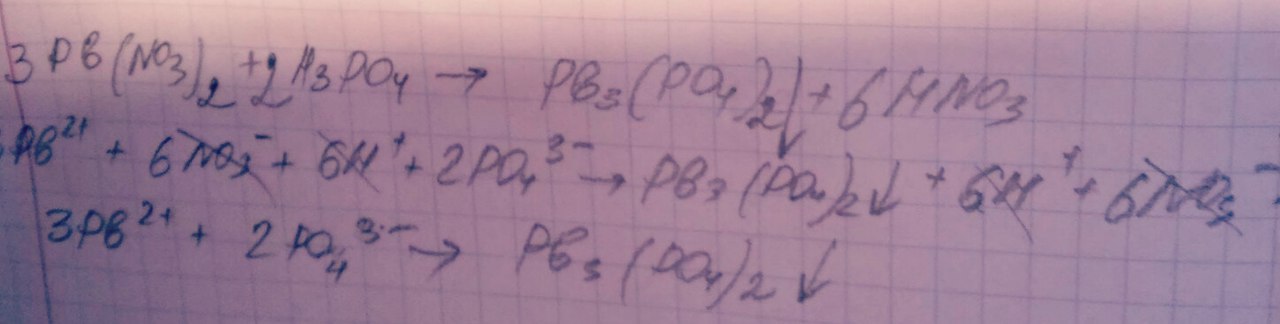 3Pb(NO₃)₂ + 2H₃PO₄ → Pb₃(PO₄)₂↓ + 6HNO₃
3Pb²⁺ + 6NO₃⁻ + 6H⁺ + 2PO₄³⁻ → Pb₃(PO₄)₂↓ + 6H⁺ + 6NO₃⁻
3Pb²⁺ + 2PO₄³⁻ → Pb₃(PO₄)₂↓